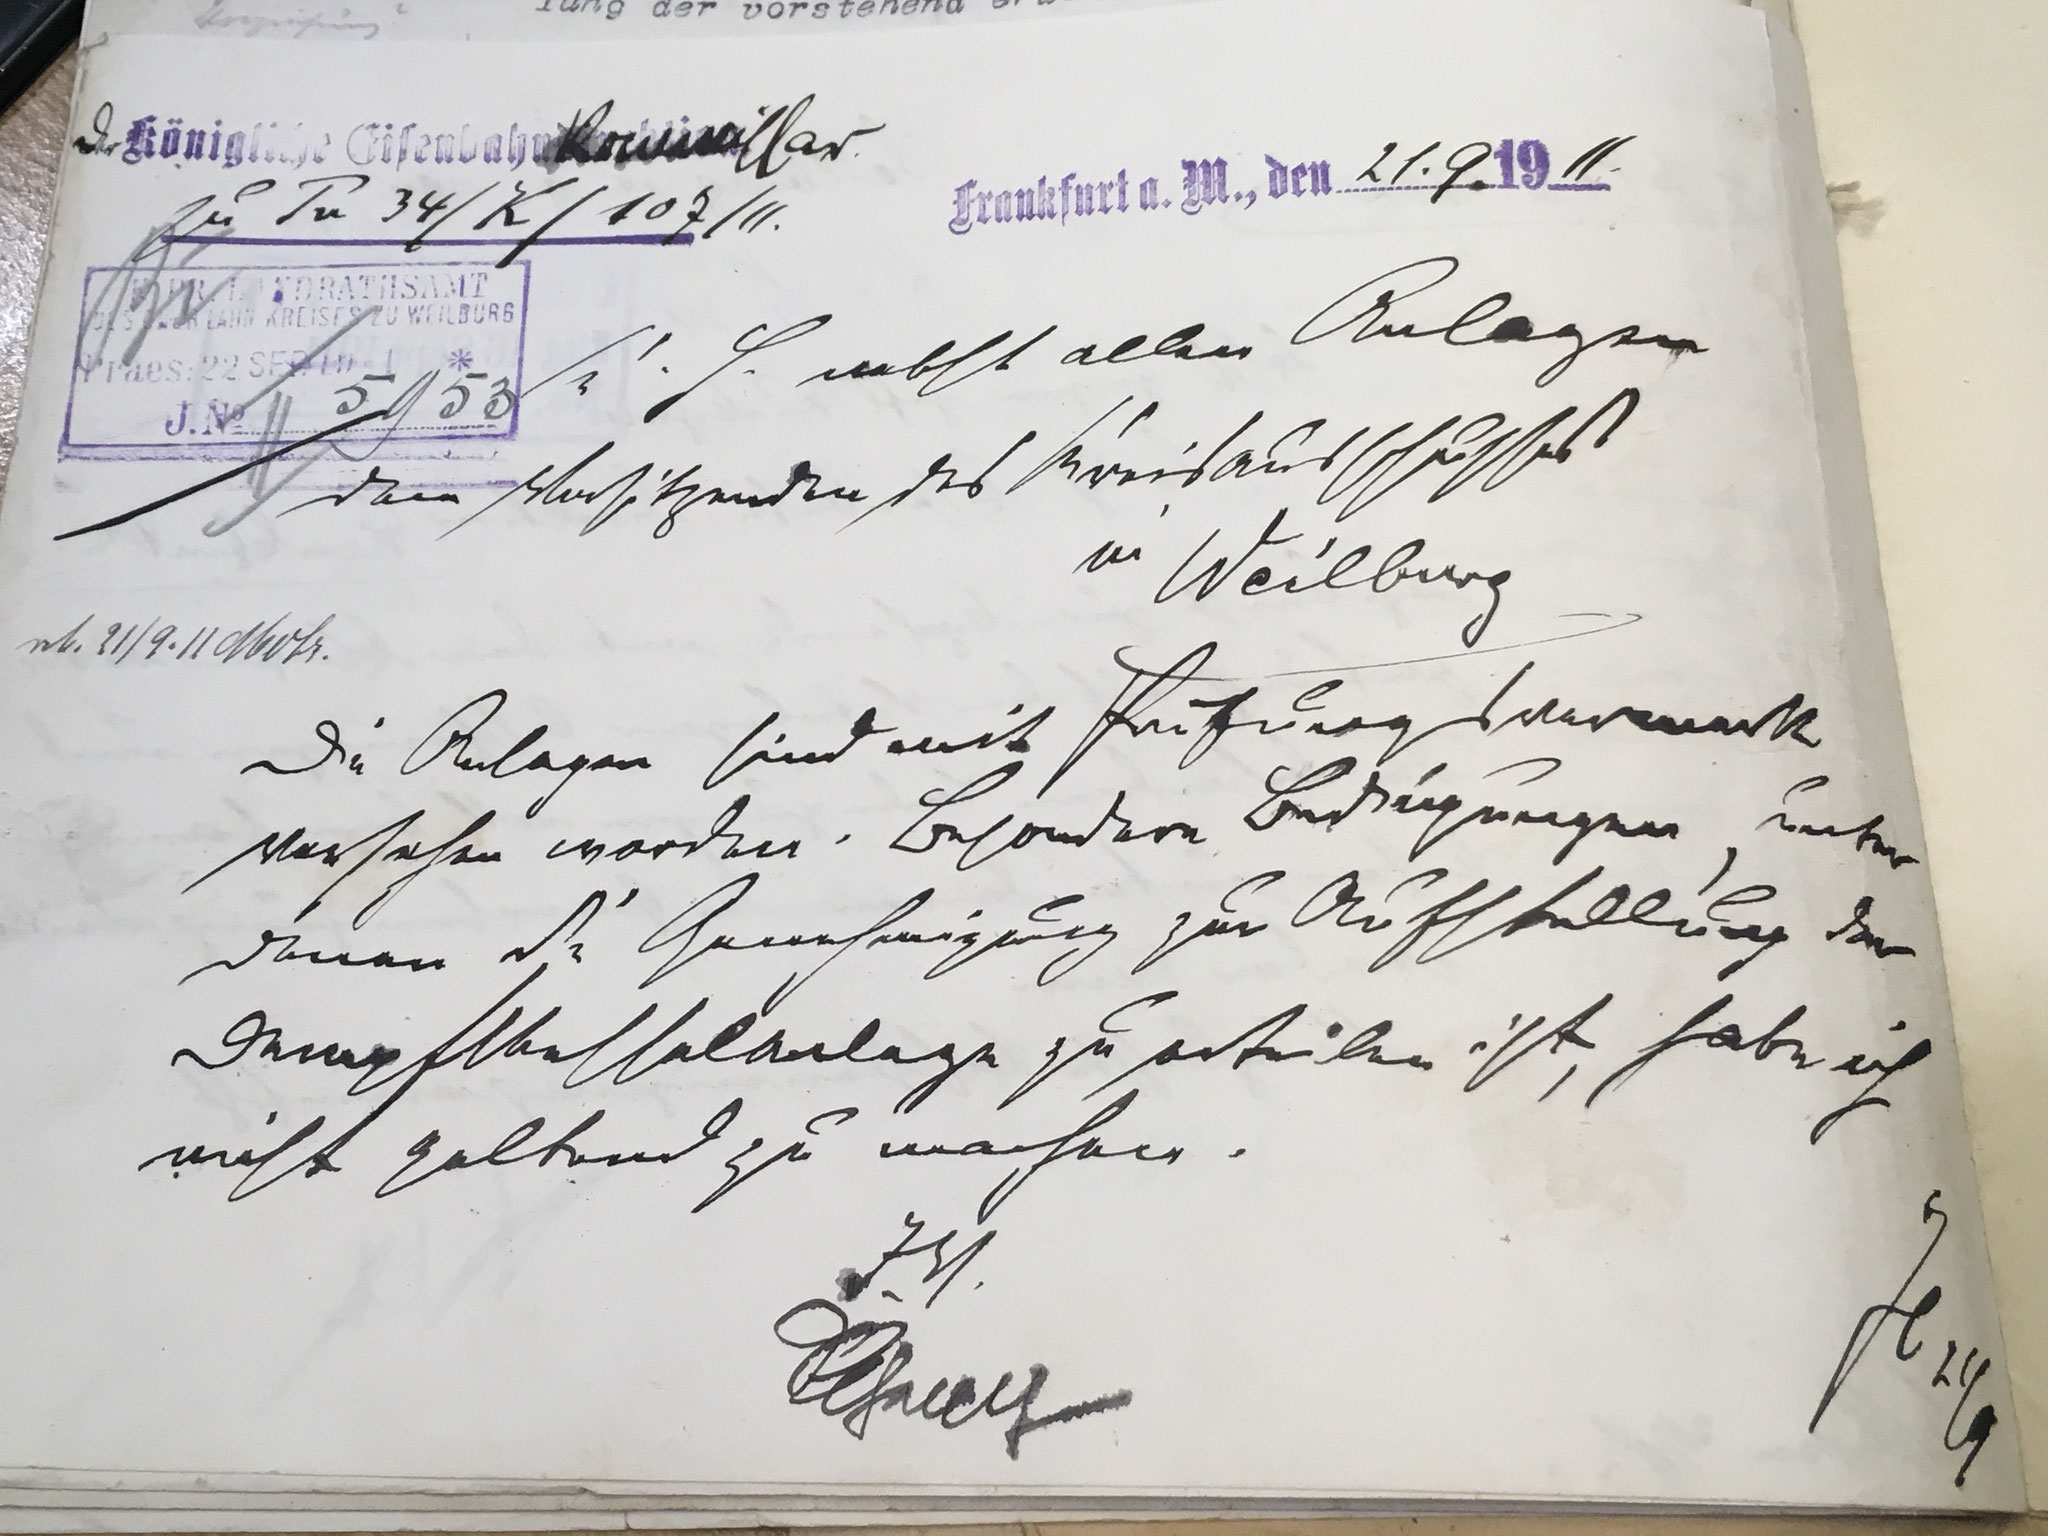 lung der vorstehend
Der Königliche Eisenbahn Kommissar.
Frankfurt a. M., den 21.9.1911.
zu Tu 34/K/107/11.
KGL. PR. LANDRATHSAMT
DES OBERLAHNKREISES ZU WEILBURG
Praes: 22 SEP. 1911 *
J. No 5953
U. nebst allen Anlagen
dem Vorsitzenden des Kreisausschusses
in Weilburg
ab. 21/9.11
Die Anlagen sind mit Prüfungsvermerk
versehen worden. Besondere Bedingungen, unter
denen die Genehmigung zur Aufstellung der
Dampfkesselanlage zu erteilen ist, habe ich
nicht geltend zu machen.
24/9